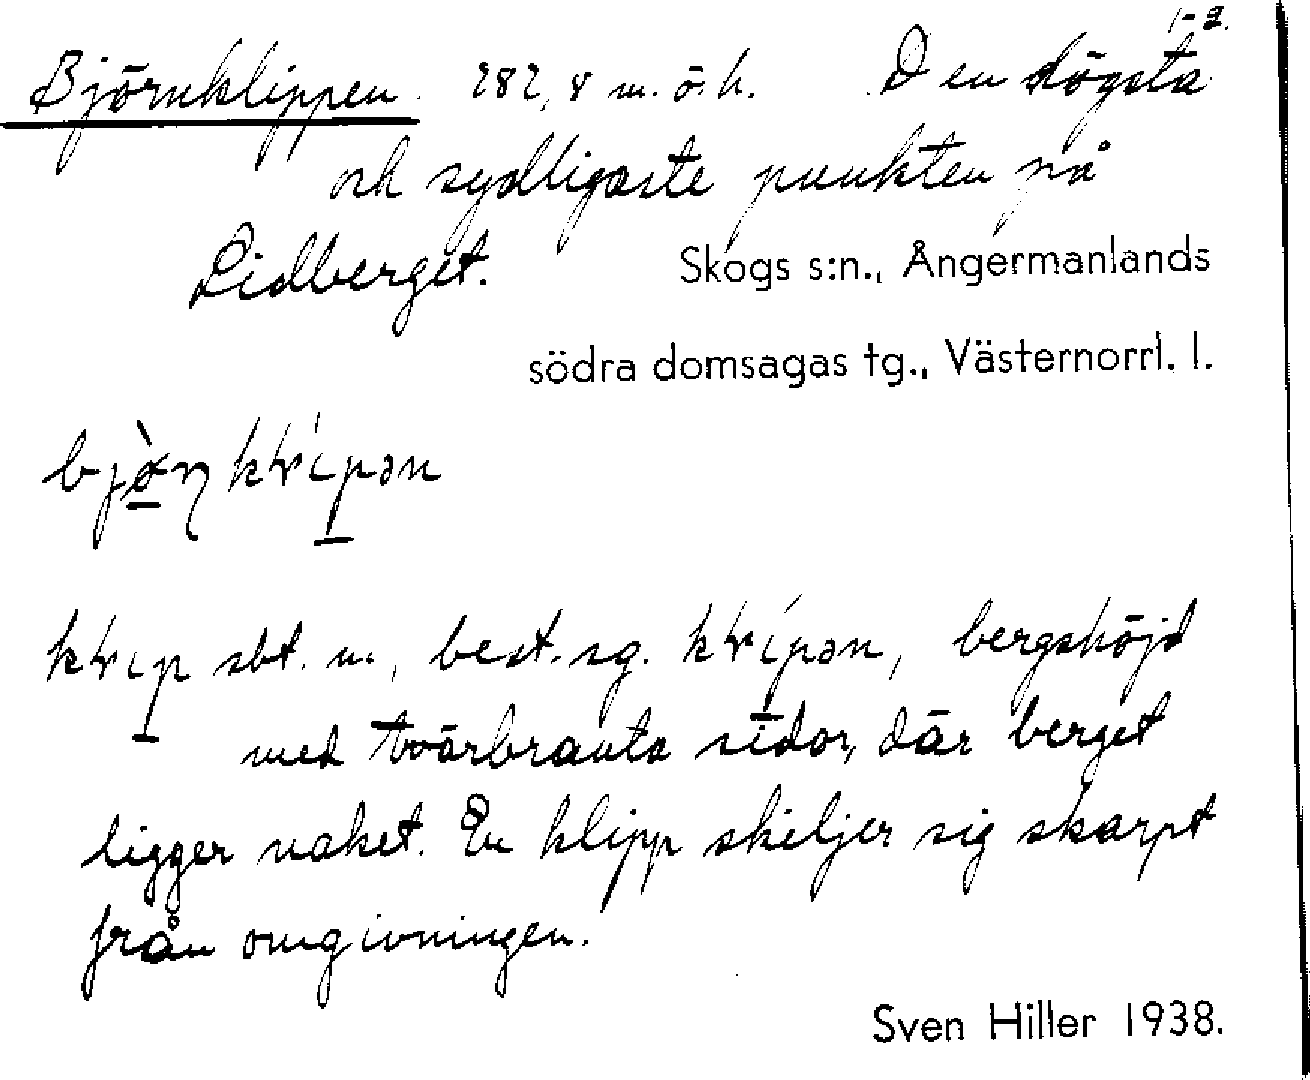 1-2.
Björnklippen. 282,8 m. ö. h. Den högsta
och sydligaste punkten på
Lidberget. Skogs s:n., Ångermanlands
södra domsagas tg., Västernorrl. l.
sbt. m., best. sg. bergshöjd
med tvärbranta sidor, där berget
ligger naket. En klipp skiljer sig skarpt
från omgivningen.
Sven Hiller 1938.